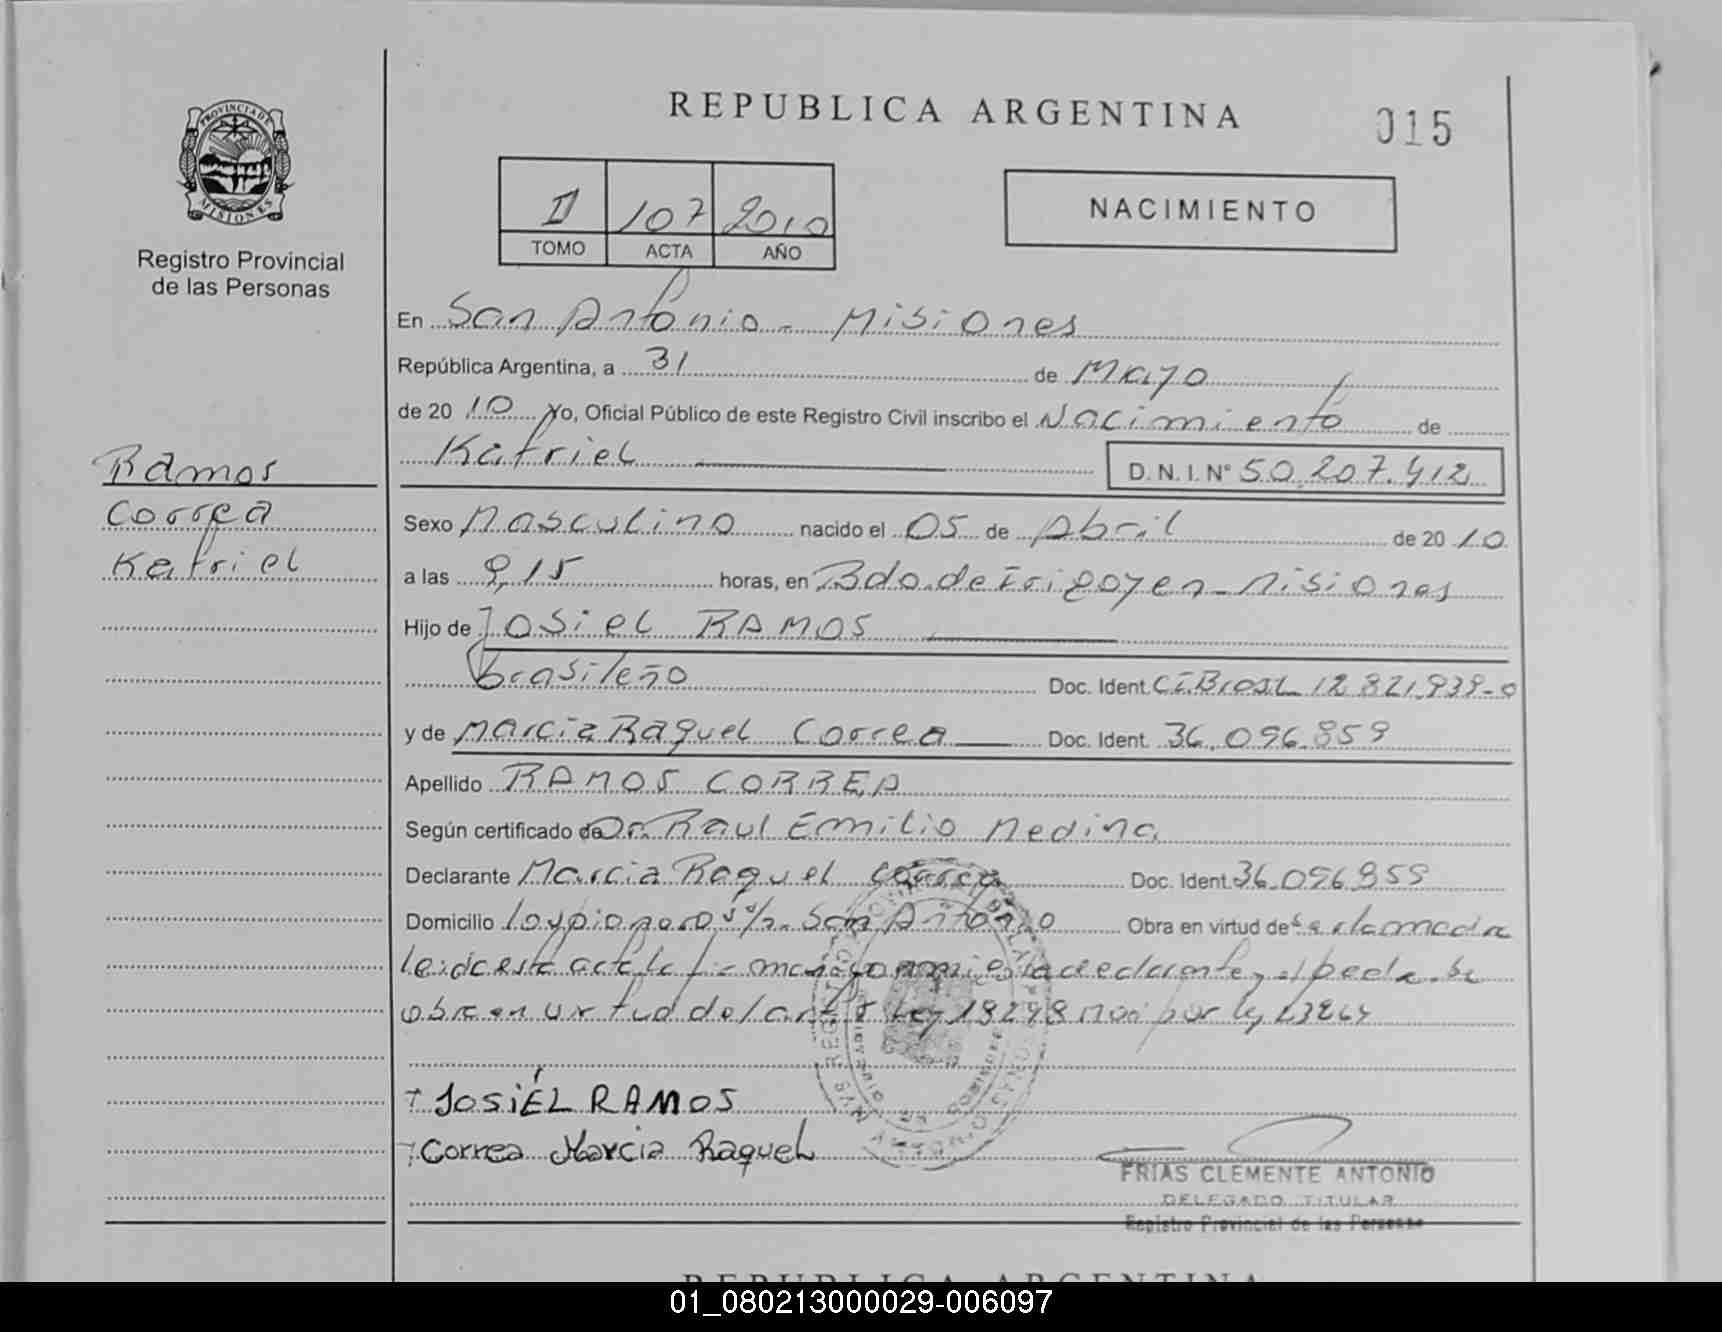 REPUBLICA ARGENTINA
015
PROVINCIA DE
MISIONES
Registro Provincial
de las Personas
II 107 2010
TOMO ACTA AÑO
NACIMIENTO
En San Antonio - Misiones
República Argentina, a 31 de Mayo
de 20 10 Yo, Oficial Público de este Registro Civil inscribo el Nacimiento de
Katriel D.N.I. Nº 50.207.412
Ramos
Correa
Katriel
Sexo Masculino nacido el 05 de Abril de 20 10
a las 9,15 horas, en Bdo. de Irigoyen - Misiones
Hijo de Josiel RAMOS
brasileño Doc. Ident. C.I.Brasil 12.821.939-0
y de Marcia Raquel Correa Doc. Ident. 36.096.859
Apellido RAMOS CORREA
Según certificado de Dr. Raul Emilio Medina
Declarante Marcia Raquel Correa Doc. Ident. 36.096.859
Domicilio San Antonio Obra en virtud de
leida esta acta la declarante y el padre
obra en virtud del art. Ley 18248 por ley 23264
+ JOSIÉL RAMOS
+ Correa Marcia Raquel
FRIAS CLEMENTE ANTONIO
DELEGADO TITULAR
Registro Provincial de las Personas
REPUBLICA ARGENTINA
01_080213000029-006097